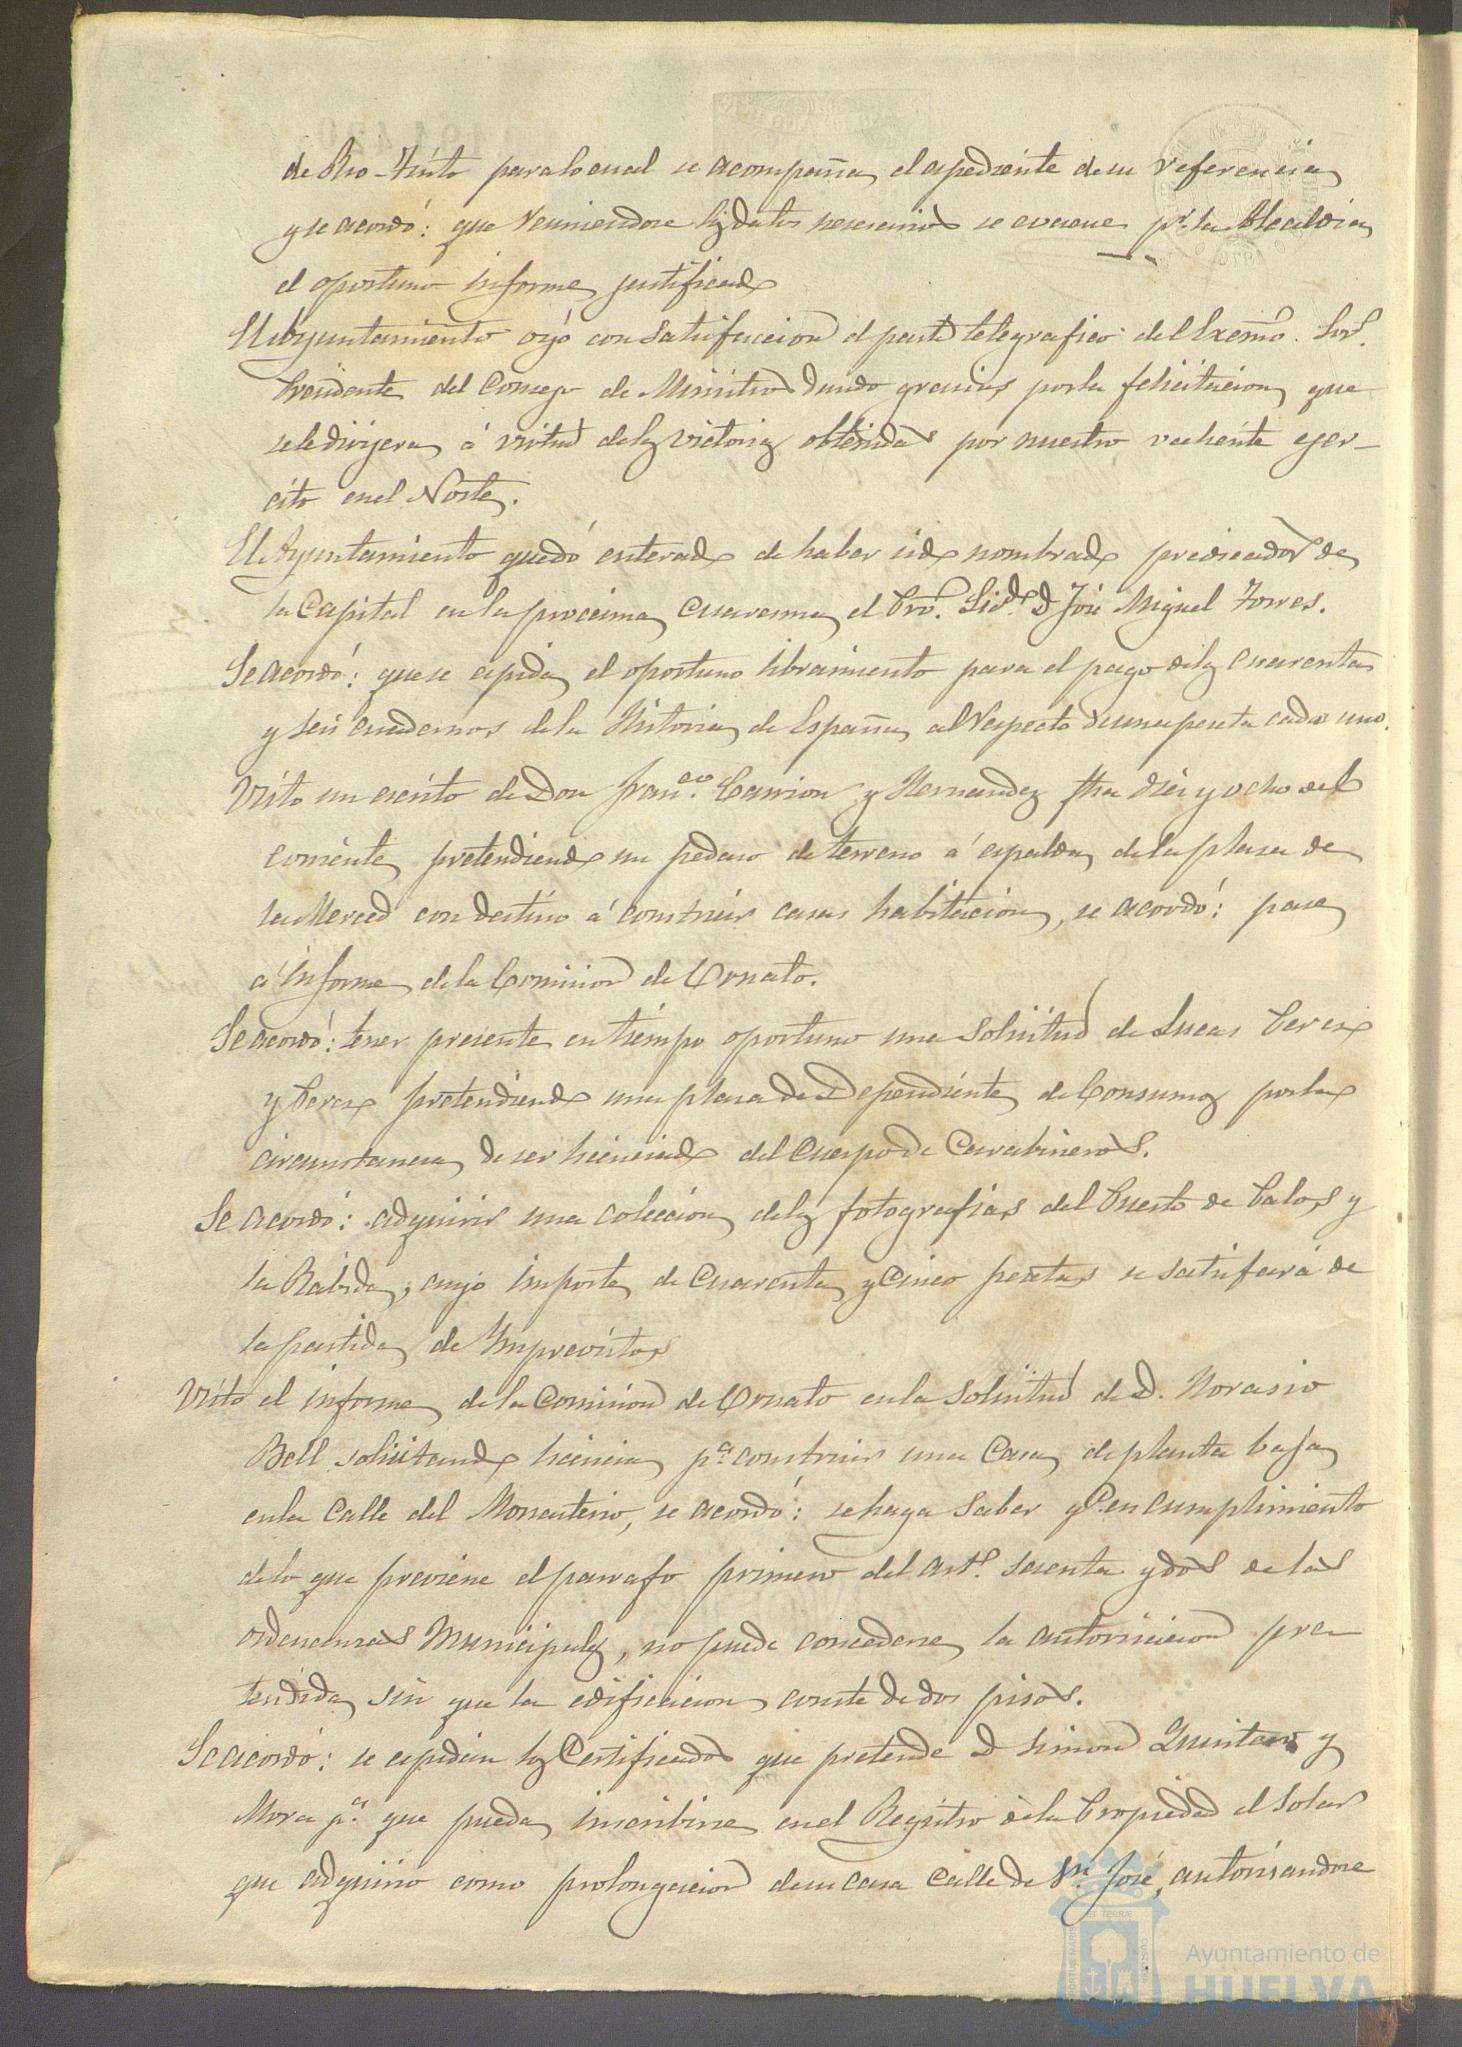 de Rio-Tinto para lo cual se acompaña el espediente de su referencia
y se acordó: que reuniendose los datos nesesarios se evacue pr. la Alcaldia
el oportuno informe justificado
El Ayuntamiento oyó con satisfaccion el parte telegrafico del Excmo. Sor.
Presidente del Consejo de Ministros dando gracias por la felicitacion que
se le dirijera á virtud de las victorias obtenidas por nuestro valiente ejer-
cito en el Norte.
El Ayuntamiento quedó enterado de haber sido nombrado predicador de
la Capital en la procsima Cuaresma el Pro. Licdo. D José Miguel Torres.
Se acordó: que se espida el oportuno libramiento para el pago de los cuarenta
y seis cuadernos de la Historia de España al respecto de una peseta cada uno.
Visto un escrito de Don Franco. Carrion y Hernandez fha diez y ocho del
corriente pretendiendo un pedaso de terreno á espalda de la plasa de
la Merced con destino á construir casas habitacion, se acordó: pase
á informe de la Comision de Ornato.
Se acordó: tener presente en tiempo oportuno una solicitud de Lucas Perez
y Perez pretendiendo una plasa de Dependiente de Consumos por la
circunstancia de ser licenciado del Cuerpo de Carabineros.
Se acordó: adquirir una coleccion de las fotografias del Puerto de Palos y
la Rábida, cuyo importe de cuarenta y cinco pesetas se satisfará de
la partida de Imprevistos
Visto el informe de la Comision de Ornato en la solicitud de D. Horasio
Bell solicitando licencia pa. construir una Casa de planta baja
en la Calle del Monasterio, se acordó: se haga saber q.e en cumplimiento
de lo que previene el parrafo primero del artº. sesenta y dos de las
ordenansas Municipales, no puede concederse la autorisacion pre-
tendida sin que la edificacion conste de dos pisos.
Se acordó: se espidan los Certificados que pretende D Simon Quintero y
Mora pa. que pueda inscribirse en el Registro de la Propiedad el solar
que adquirio como prolongacion de su casa Calle de Sn. José, autorisandose
Ayuntamiento de
HUELVA